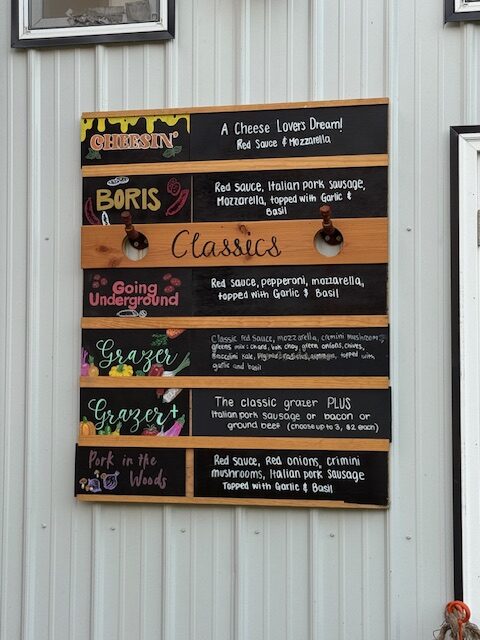 CHEESIN'
A Cheese Lovers Dream!
Red Sauce & Mozzarella
BORIS
Red sauce, Italian pork sausage,
Mozzarella, topped with Garlic &
Basil
Classics
Going
Underground
Red sauce, pepperoni, mozzarella,
topped with Garlic & Basil
Grazer
Classic red sauce, mozzarella, cremini mushroom,
greens mix: chard, bok choy, green onions, chives,
Broccolini kale, asparagus, topped with
garlic and basil
Grazer+
The classic grazer PLUS
Italian pork sausage or bacon or
ground beef (choose up to 3, $2 each)
Pork in the
Woods
Red sauce, Red onions, crimini
mushrooms, Italian pork sausage
Topped with Garlic & Basil